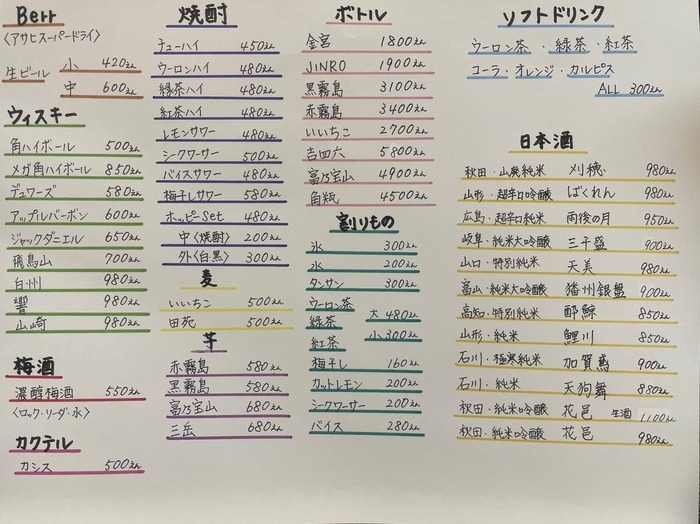 Berr
〈アサヒスーパードライ〉
生ビール 小 420えん
中 600えん
ウィスキー
角ハイボール 500えん
メガ角ハイボール 850えん
デュワーズ 580えん
アップルバーボン 600えん
ジャックダニエル 650えん
飛鳥山 700えん
白州 980えん
響 980えん
山崎 980えん
梅酒
濃醇梅酒 550えん
〈ロック・ソーダ・水〉
カクテル
カシス 500えん
焼酎
チューハイ 450えん
ウーロンハイ 480えん
緑茶ハイ 480えん
紅茶ハイ 480えん
レモンサワー 480えん
シークワーサー 500えん
バイスサワー 480えん
梅干しサワー 580えん
ホッピーSet 480えん
中〈焼酎〉 200えん
外〈白黒〉 300えん
麦
いいちこ 500えん
田苑 500えん
芋
赤霧島 580えん
黒霧島 580えん
富乃宝山 680えん
三岳 680えん
ボトル
金宮 1800えん
JINRO 1900えん
黒霧島 3100えん
赤霧島 3400えん
いいちこ 2700えん
吉四六 5800えん
富乃宝山 4900えん
角瓶 4500えん
割りもの
氷 300えん
水 200えん
タンサン 300えん
ウーロン茶
緑茶 大 480えん
紅茶 小 300えん
梅干し 160えん
カットレモン 200えん
シークワーサー 200えん
バイス 280えん
ソフトドリンク
ウーロン茶・緑茶・紅茶
コーラ・オレンジ・カルピス
ALL 300えん
日本酒
秋田・山廃純米 刈穂 980えん
山形・超辛口吟醸 ばくれん 980えん
広島・超辛口純米 雨後の月 950えん
岐阜・純米大吟醸 三千盛 900えん
山口・特別純米 天美 980えん
富山・純米大吟醸 播州銀盤 900えん
高知・特別純米 酔鯨 850えん
山形・純米 鯉川 850えん
石川・極寒純米 加賀鳶 900えん
石川・純米 天狗舞 880えん
秋田・純米吟醸 花邑 生酒 1100えん
秋田・純米吟醸 花邑 980えん